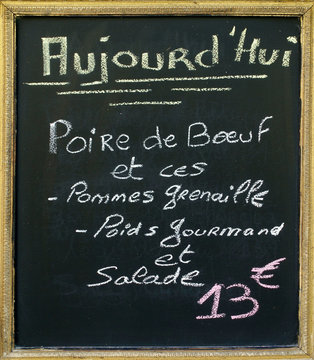 Aujourd'Hui
Poire de Bœuf
et ces
- Pommes grenaille
- Poids gourmand
et
Salade
13 €